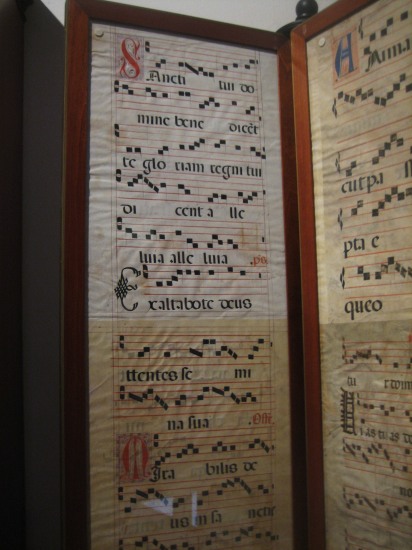 Sancti tui do
mine bene dicẽt
te glo riam regni tui
di cent a lle
luia alle luia .ps
Exaltabote deus
ttentes se mi
na sua .Offi
Mira bilis de
us in sa ncti
A
culpa
pta e
queo